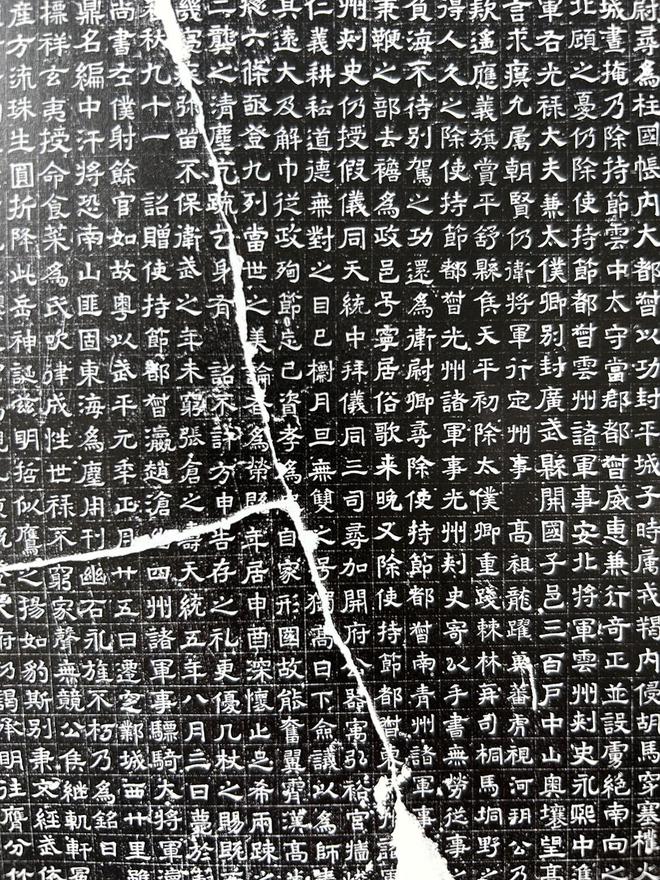 尉尋為柱國帳內大都督以功封平城子時属戎羯內侵胡馬穿塞檄火
城晝掩乃除持節雲中太守當郡都督威惠兼行奇正並設虜絕南向之
北顧之憂仍除使持節都督雲州諸軍事安北將軍雲州刾史永熙中進
軍右光祿大夫兼太僕卿別封廣武縣開國子邑三百戶中山奧壤望高
言求瘼九属朝賢仍衛將軍行定州事 高祖龍躍蕃虎視河朔公乃
款遙應義旗賞平舒縣侯天平初除太僕卿重踐棘林再司桐馬坰野之
得人久之除使持節都督光州諸軍事光州刾史寄以手書無勞從事
負海不待別駕之功還為衛尉卿尋除使持節都督南青州諸軍事
秉鞭之部去襜為政邑号寧居俗歌来晚又除使持節都督東州諸軍
州刾史仍授假儀同天統中拜儀同三司尋加開府公器寓弘裕官牆
仁義耕耘道德無對之目已欄月旦無雙之号獨高日下僉議以為師
其遠大及解巾從政殉節忘己資孝為自家形國故能奮翼霄漢高
飛六條亟登九列當世之美論者為榮縣車年居申酉深懷止足希兩疎之
二龔之清塵亢疏乞身有 詔不許方申告存之礼更優几杖之賜既
幾寢疾張笛不保衛武之年未窮張倉之壽天統五年八月三日薨於
春秋九十一 詔贈使持節都督瀛趙滄四州諸軍事驃騎大將軍瀛
尚書左僕射餘官如故粵以武平元年正月廿五日遷窆鄴城西廿里
鼎名編中汗將恐南山匪固東海為塵用刊幽石永旌不朽乃為銘曰
標祥玄夷授命食菜為氏吹律成性世祿不窮家聲無競公侯繼軌軒冕
產方流珠生圓折降此岳神誕茲明哲似鷹之揚如豹斯別秉文經武依仁